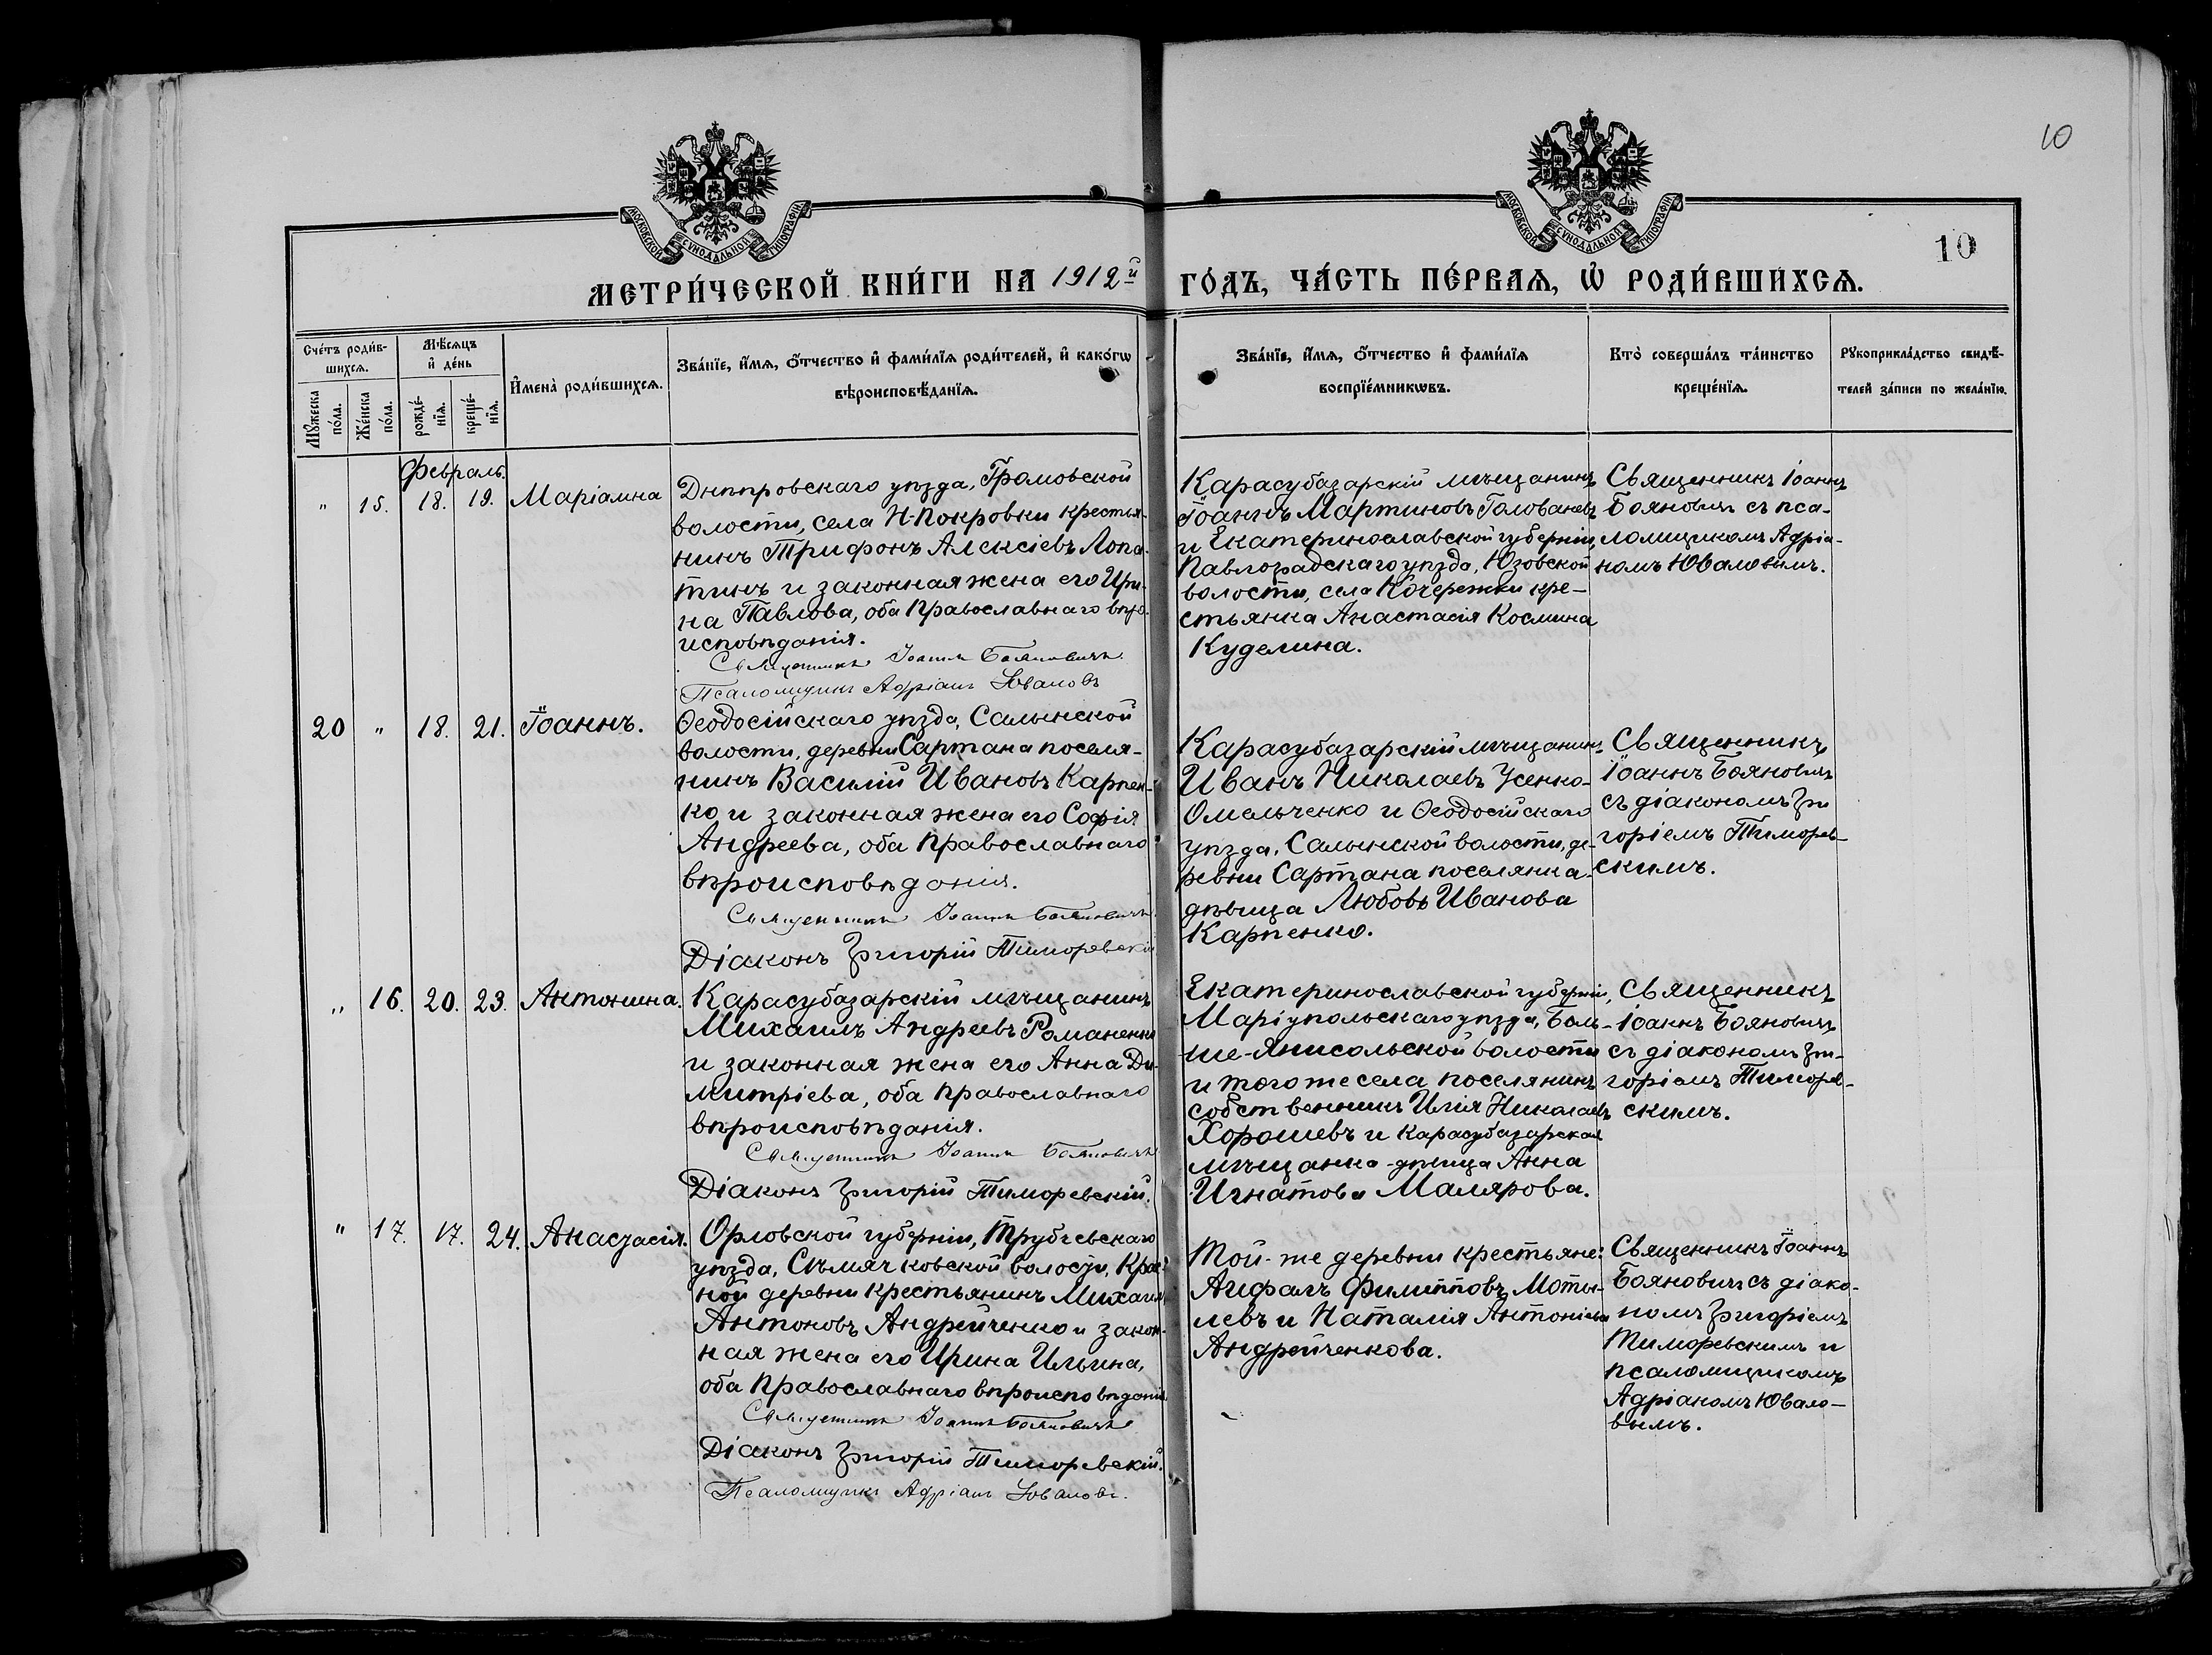 10
МОСКОВСКОЙ СѴНОДАЛЬНОЙ ТИПОГРАФІИ
МОСКОВСКОЙ СѴНОДАЛЬНОЙ ТИПОГРАФІИ
10
МЕТРИ́ЧЕСКОЙ КНИ́ГИ НА 1912й ГО́ДЪ, ЧА́СТЬ ПЕ́РВАѦ, Ѡ҆ РОДИ́ВШИХСѦ.
Сче́тъ роди́в-
шихсѧ.
Мꙋ́жеска
по́ла.
Же́нска
по́ла.
Мѣ́сѧцъ
и҆ де́нь
рожде́-
нїѧ.
креще́-
нїѧ.
И҆мена̀ роди́вшихсѧ.
Зва́нїе, и҆́мѧ, ѻ҆́тчество и҆ фами́лїѧ роди́телей, и҆ како́гѡ
вѣроисповѣ́данїѧ.
Зва́нїе, и҆́мѧ, ѻ҆́тчество и҆ фами́лїѧ
воспрїе́мникѡвъ.
Кто̀ соверша́лъ та́инство
креще́нїѧ.
Рꙋкоприкла́дство свидѣ́-
телей за́писи по жела́нїю.
Февраль.
" 15. 18. 19. Маріамна
Днѣпровскаго уѣзда, Громовской
волости, села Н-Покровки крестья-
нинъ Трифонъ Алексіевъ Лопа-
тинъ и законная жена его Ири-
на Павлова, оба православнаго вѣро-
исповѣданія.
Священникъ Іоаннъ Бояновичъ
Псаломщикъ Адріанъ Юваловъ
Карасубазарскій мѣщанинъ
Іоаннъ Мартиновъ Голованевъ
и Екатеринославской губерніи,
Павлоградскаго уѣзда, Юзовской
волости, села Кочережки кре-
стьянка Анастасія Космина
Куделина.
Священникъ Іоаннъ
Бояновичъ съ пса-
ломщикомъ Адріа-
номъ Юваловымъ.
20 " 18. 21. Іоаннъ.
Ѳеодосійскаго уѣзда, Салынской
волости, деревни Сартана поселя-
нинъ Василій Ивановъ Карпен-
ко и законная жена его Софія
Андреева, оба православнаго
вѣроисповѣданія.
Священникъ Іоаннъ Бояновичъ
Діаконъ Григорій Тиморевскій
Карасубазарскій мѣщанинъ
Иванъ Николаевъ Усенко-
Омельченко и Ѳеодосійскаго
уѣзда, Салынской волости, де-
ревни Сартана поселянка-
дѣвица Любовь Иванова
Карпенко.
Священникъ
Іоаннъ Бояновичъ
съ діакономъ Гри
горіемъ Тиморев-
скимъ.
" 16. 20. 23. Антонина.
Карасубазарскій мѣщанинъ
Михаилъ Андреевъ Романенко
и законная жена его Анна Ди-
митріева, оба православнаго
вѣроисповѣданія.
Священникъ Іоаннъ Бояновичъ
Діаконъ Григорій Тиморевскій.
Екатеринославской губерніи,
Маріупольскаго уѣзда, Боль-
ше-Янисольской волости
и того же села поселянинъ
собственникъ Илія Николаевъ
Хорошевъ и Карасубазарская
мѣщанка-дѣвица Анна
Игнатова Малярова.
Священникъ
Іоаннъ Бояновичъ
съ діакономъ Гри-
горіемъ Тиморев-
скимъ.
" 17. 17. 24. Анастасія.
Орловской губерніи, Трубчевскаго
уѣзда, Сѣмячковской волости, Крас-
ной деревни крестьянинъ Михаилъ
Антоновъ Андрейченко и закон-
ная жена его Ирина Ильина,
оба православнаго вѣроисповѣданія
Священникъ Іоаннъ Бояновичъ
Діаконъ Григорій Тиморевскій.
Псаломщикъ Адріанъ Юваловъ.
Той-же деревни крестьяне:
Агифалъ Филипповъ Моты-
левъ и Наталія Антоніева
Андрейченкова.
Священникъ Іоаннъ
Бояновичъ съ діако-
номъ Григоріемъ
Тиморевскимъ и
псаломщикомъ
Адріаномъ Ювало-
вымъ.